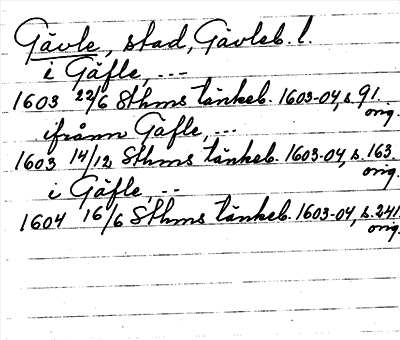 Gävle, stad, Gävleb. l.
i Gäfle, ---
1603 22/6 Sthms tänkeb. 1603-04, s. 91.
orig.
ifrånn Gäfle, ---
1603 14/12 Sthms tänkeb. 1603-04, s. 163.
orig.
i Gäfle, ---
1604 16/6 Sthms tänkeb. 1603-04, s. 241.
orig.